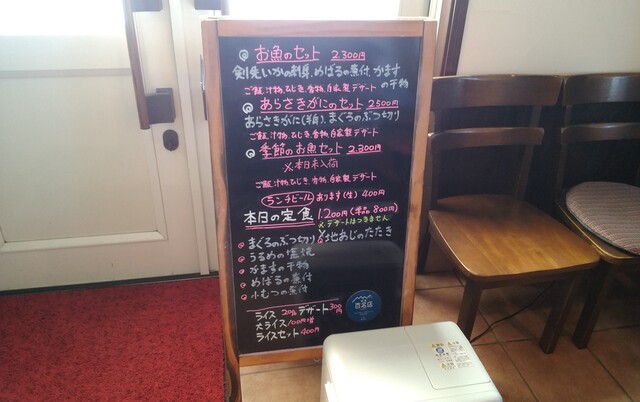 お魚のセット 2300円
剣先いかの刺身、めばるの煮付、かます
の干物
ご飯、汁物、ひじき、香物、自家製デザート
あらさきがにのセット 2500円
あらさきがに(半身)、まぐろのぶつ切り
ご飯、汁物、ひじき、香物、自家製デザート
季節のお魚セット 2,300円
※本日未入荷
ご飯、汁物、ひじき、香物、自家製デザート
ランチビール あります(生) 400円
本日の定食 1,200円(単品800円)
※デザートはつきません
まぐろのぶつ切り
地あじのたたき
うるめの塩焼
かますの干物
めばるの煮付
小むつの煮付
ライス 200 デザート300円
大ライス/100円増
ライスセット400円
百名店